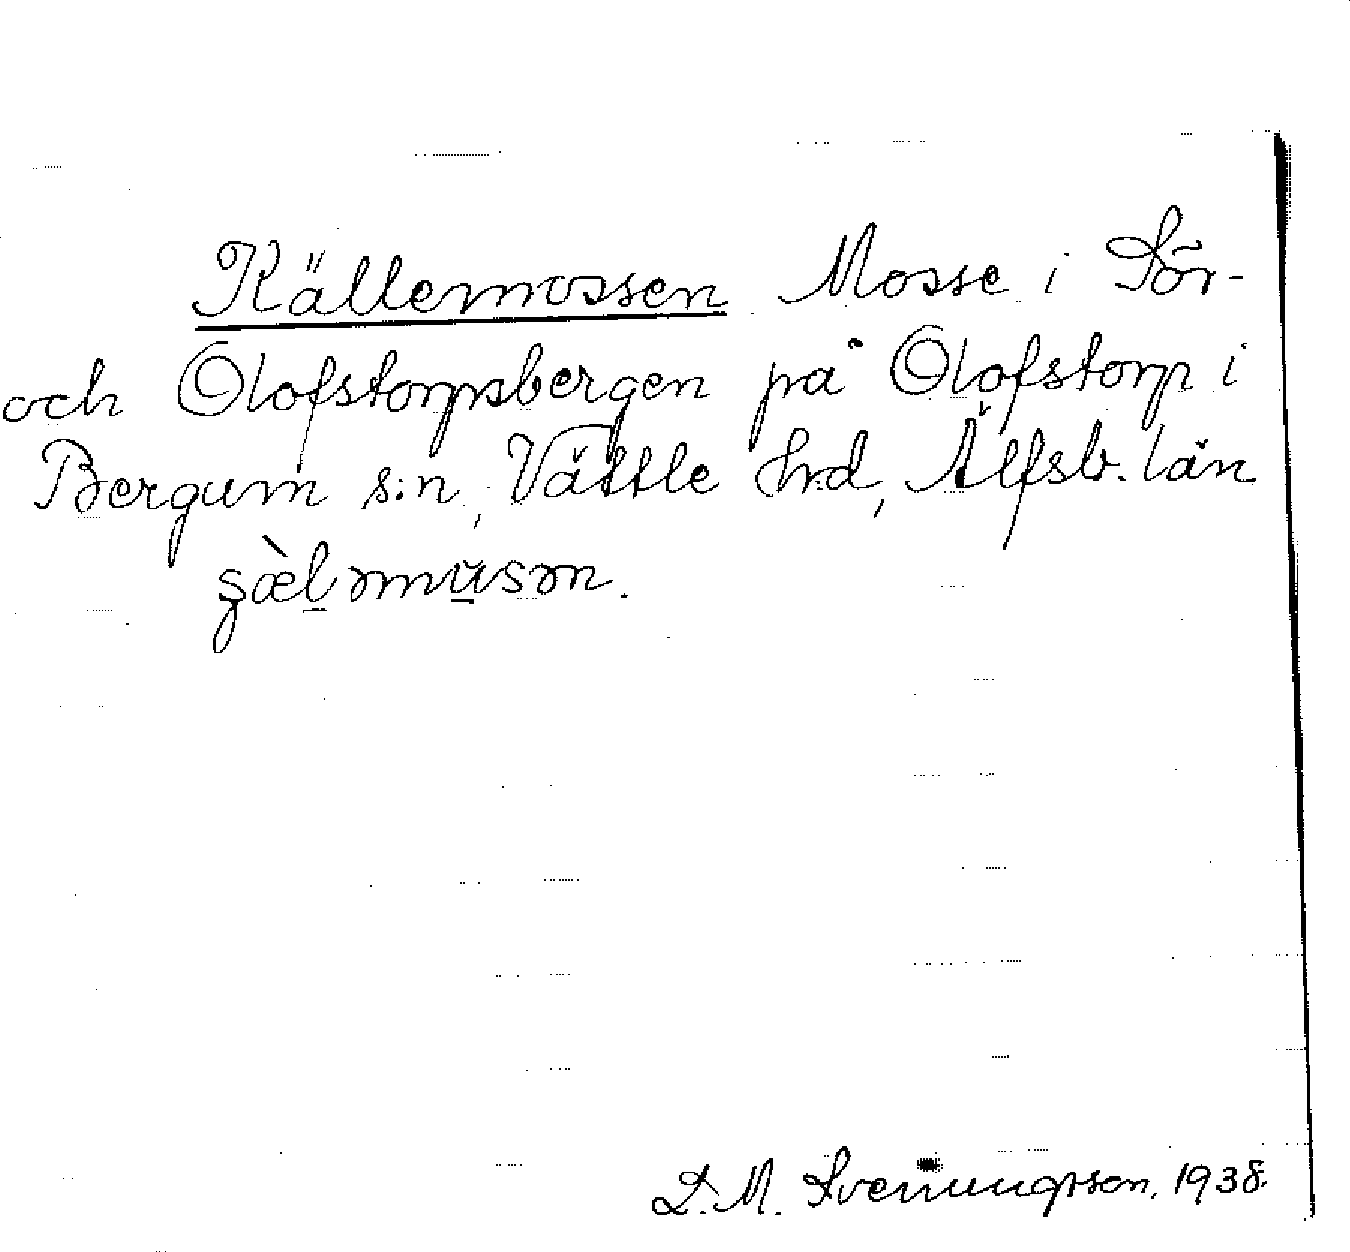 Källemossen Mosse i Sör-
och Olofstorpsbergen på Olofstorp i
Bergum s:n, Vättle hrd, Älfsb. län
D. M. Svenungsson, 1938.